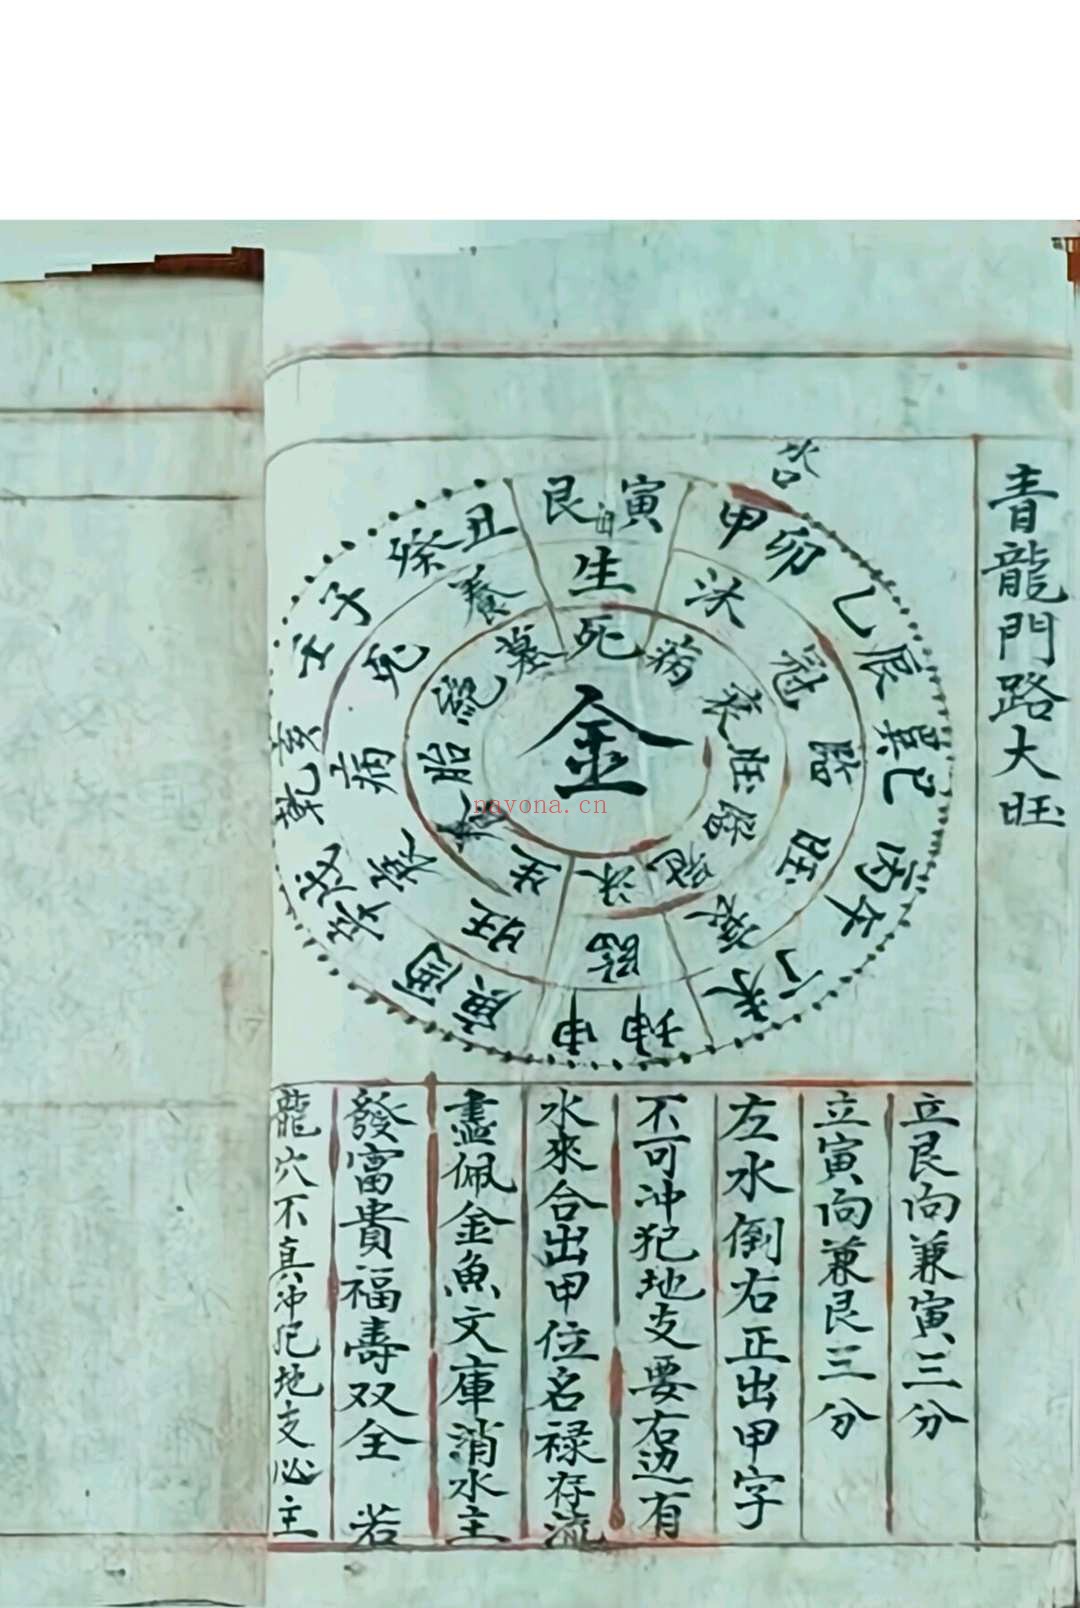 青龍門路大旺
谷
艮寅
甲卯
乙辰
巽巳
丙午
丁未
坤申
庚酉
辛戌
乾亥
壬子
癸丑
生
沐
冠
臨
旺
衰
臨
旺
衰
病
死
養
死
病
衰
旺
臨
冠
沐
生
養
胎
絕
墓
金
nayona.cn
立艮向兼寅三分
立寅向兼艮三分
左水倒右正出甲字
不可冲犯地支要右边有
水來合出甲位名禄存流
盡佩金魚文庫消水主
發富貴福壽双全 若
龍穴不真冲犯地支必主